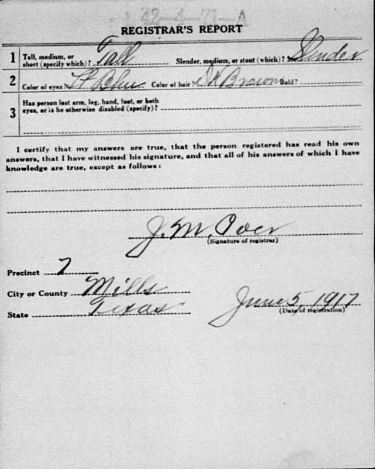 REGISTRAR'S REPORT
1 Tall, medium, or short (specify which)? Tall Slender, medium, or stout (which)? Slender
2 Color of eyes Lt Blue Color of hair Brown Bald?
3 Has person lost arm, leg, hand, foot, or both eyes, or is he otherwise disabled (specify)?
I certify that my answers are true, that the person registered has read his own
answers, that I have witnessed his signature, and that all of his answers of which I have
knowledge are true, except as follows:
J. M.
(Signature of registrar)
Precinct 7
City or County Mills
State Texas
June 5, 1917
(Date of registration)